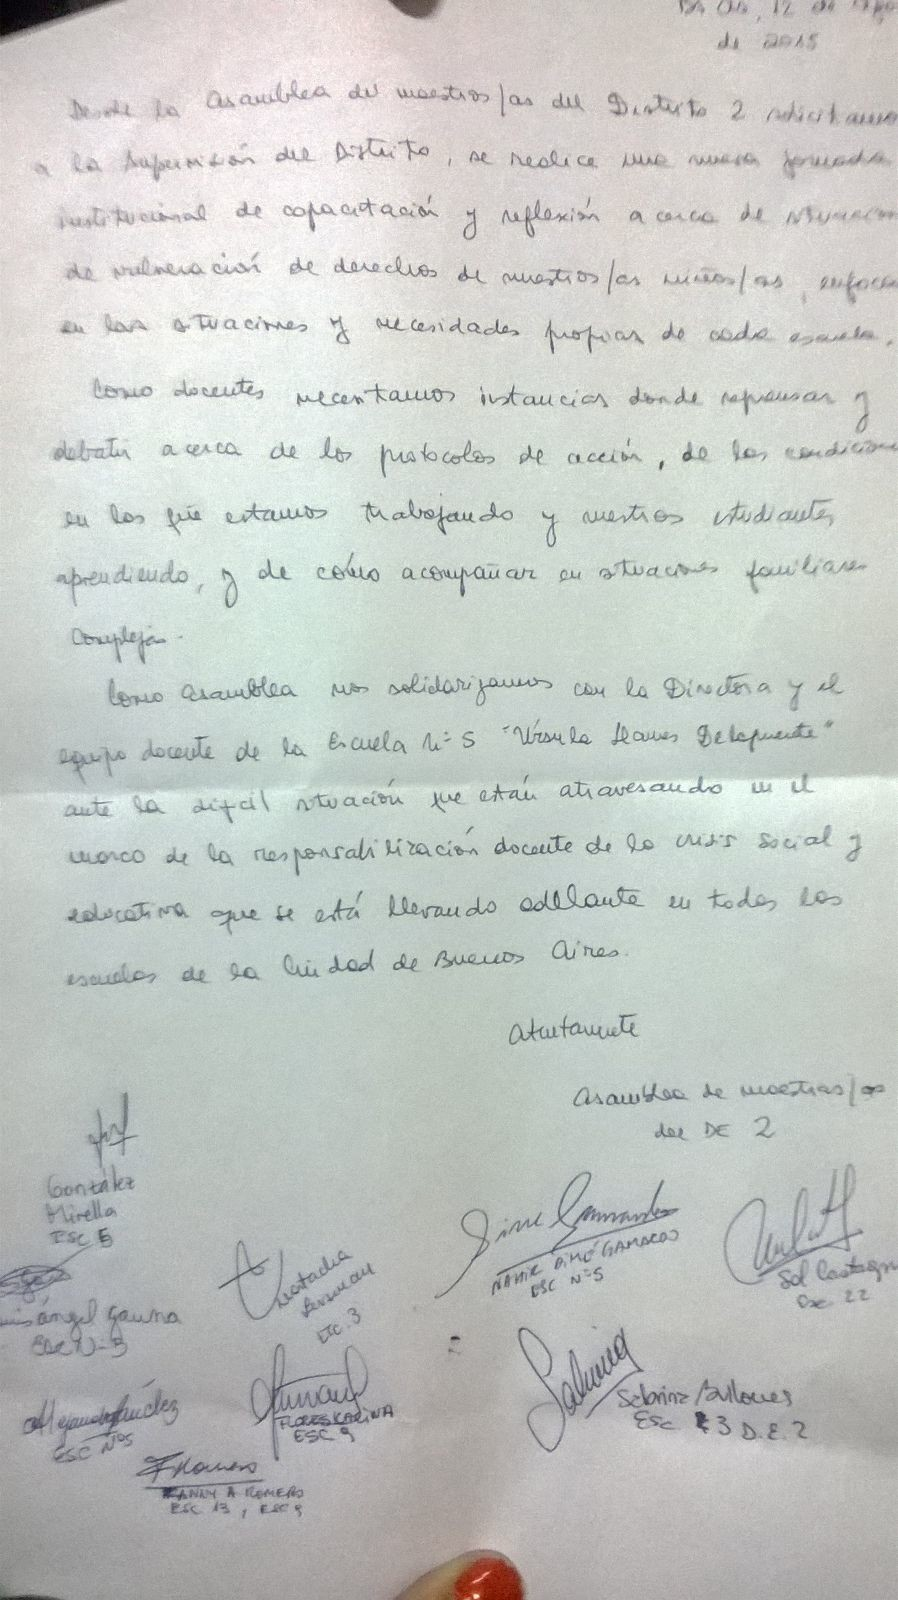 Bs As, 12 de
de 2015
Desde la Asamblea del maestros/as del Distrito 2 solicitamos
a la Supervisión del Distrito, se realice una nueva jornada
institucional de capacitación y reflexión acerca de situaciones
de vulneración de derechos de nuestros/as niños/as,
en las situaciones y necesidades propias de cada escuela.
Como docentes necesitamos instancias donde repensar y
debatir acerca de los protocolos de acción, de las condiciones
en las que estamos trabajando y nuestros estudiantes
aprendiendo, y de cómo acompañar en situaciones familiares
complejas.
Como asamblea nos solidarizamos con la Directora y el
equipo docente de la Escuela Nº 5 "Úrsula Llames Delapuente"
ante la difícil situación que están atravesando en el
marco de la responsabilización docente de la crisis social y
educativa que se está llevando adelante en todas las
escuelas de la Ciudad de Buenos Aires.
Atentamente
Asamblea de maestras/os
del DE 2
González
Mirella
ESC 5
ángel Gauna
ESC Nº 3
Natacha
ESC. 3
ESC Nº 5
Sol
Esc 22
Alejandra Sández
ESC Nº5
FLORES KARINA
ESC 9
FANNY A ROMERO
ESC 13, ESC 9
Sabrina
ESC 3 D.E. 2